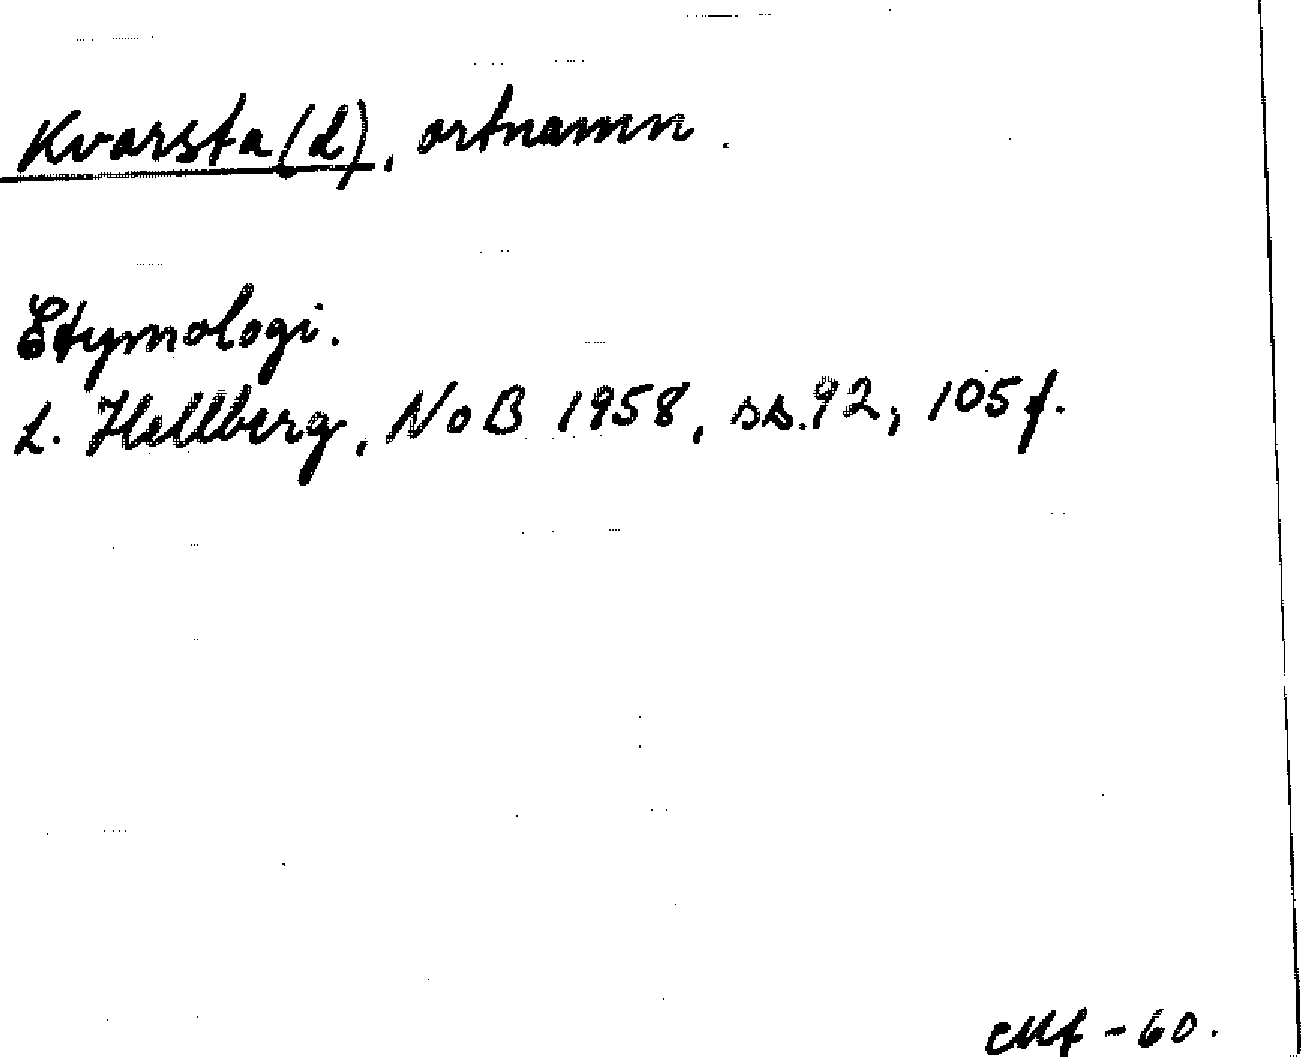 Kvarsta(d), ortnamn.
Etymologi.
L. Hellberg, NoB 1958, ss. 92, 105 f.
-60.